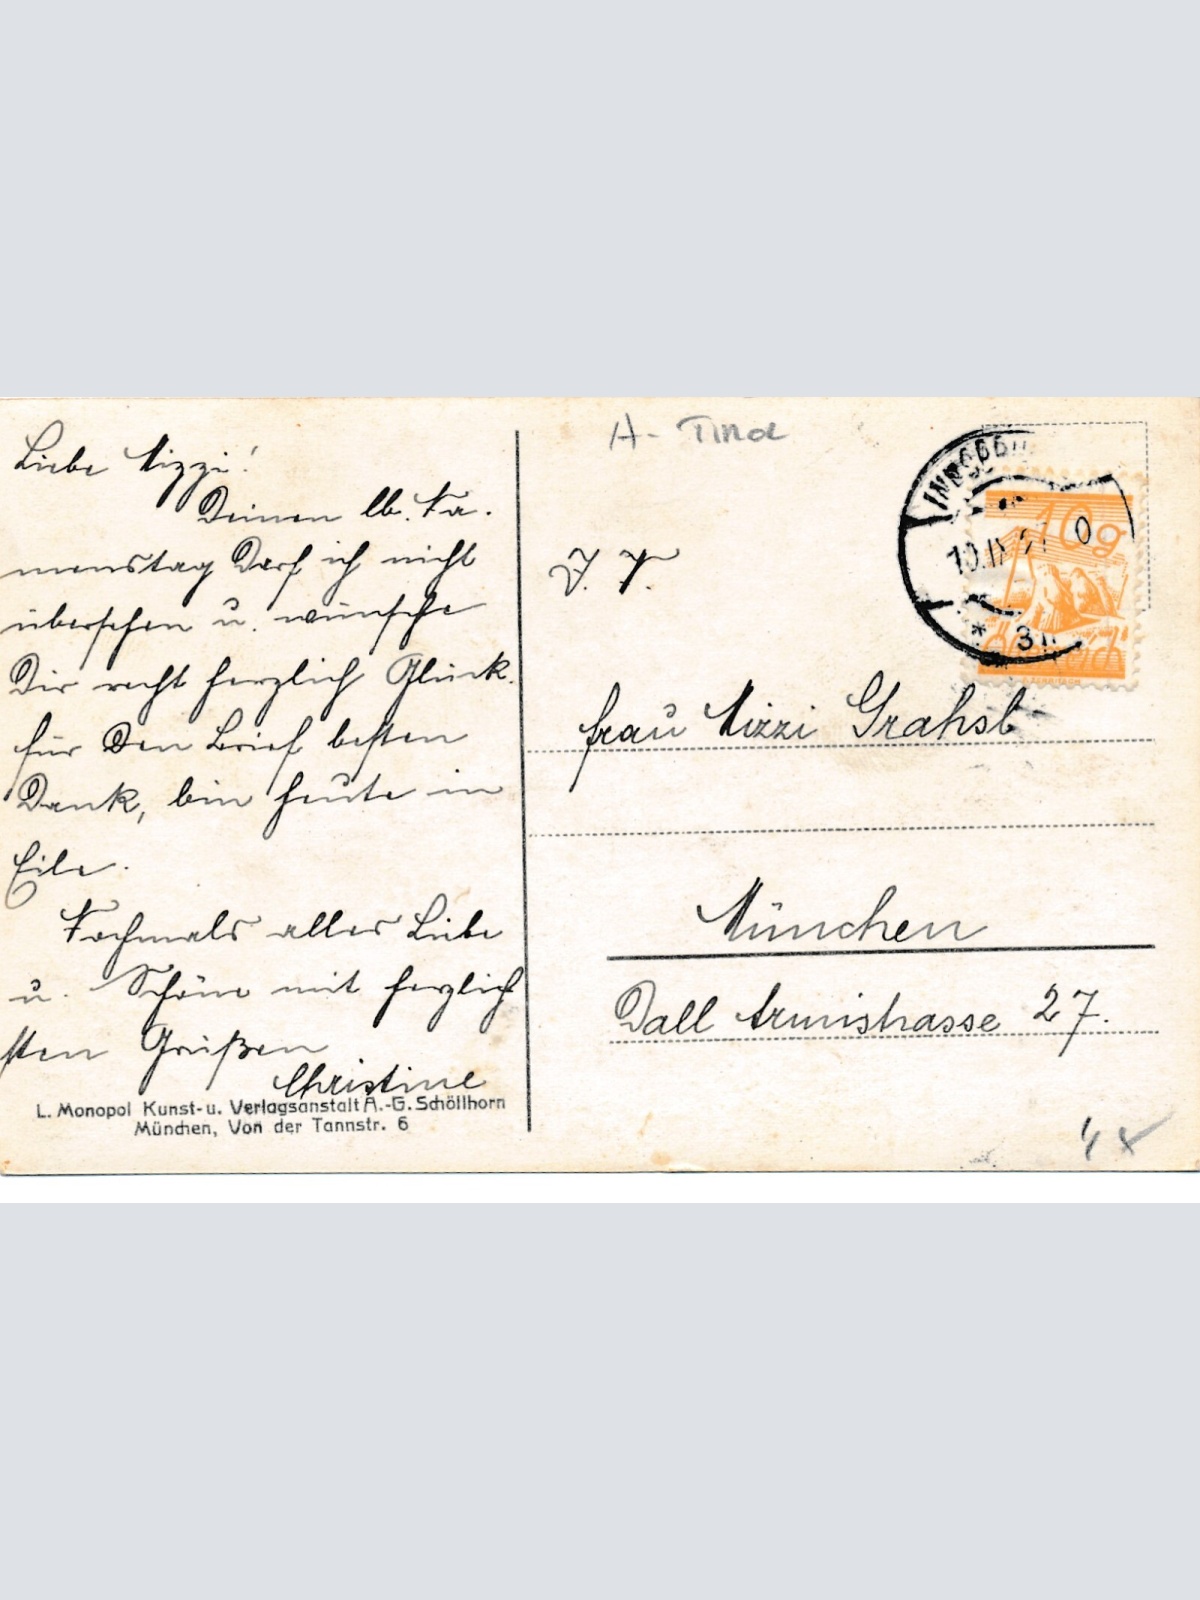 Liebe Mizzi!
Deinen lb. Na-
menstag darf ich nicht
übersehen u. wünsche
Dir recht herzlich Glück.
für den Brief besten
Dank, bin heute in
Eile.
Nochmals alles Liebe
u. Schöne mit herzlich
sten Grüßen
Christine
L. Monopol Kunst- u. Verlagsanstalt A.-G. Schöllhorn
München, Von der Tannstr. 6
A - Tirol
10g
Österreich
Frau Mizzi
München
Dall Armistrasse 27.